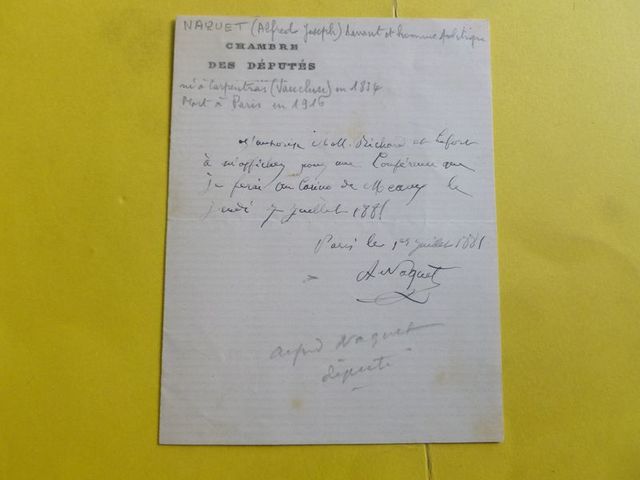 NAQUET (Alfred Joseph) savant et homme politique
CHAMBRE
DES DÉPUTÉS
né à Carpentras (Vaucluse) en 1834
Mort à Paris en 1916
J'autorise MM. Richard et Lefort
à m'afficher pour une Conférence que
je ferai au Casino de le
jeudi 7 juillet 1881
Paris le 1er juillet 1881
A Naquet
Alfred Naquet
député